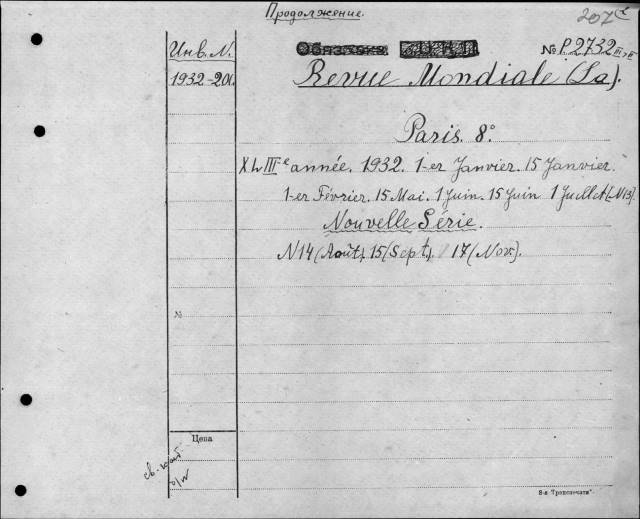 Продолжение.
207
Инв. N.
№ P.2732 III, II
1932-201.
Revue Mondiale (La).
Paris. 8°
XLIIIe année. 1932. 1-er Janvier. 15 Janvier.
1-er Février. 15 Mai. 1 Juin. 15 Juin 1 Juillet (N13).
Nouvelle Série.
N14 (Août), 15 (Sept). 17 (Nov).
Цена
8-я Транспечати".